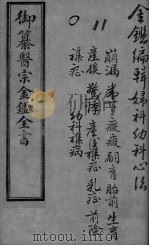 金鑑編輯婦科幼科心法
崩漏 帶下 癥瘕 嗣育 胎前 生育
產後 乳症 前陰
雜症 幼科雜病
11
0
御纂醫宗金鑑全書